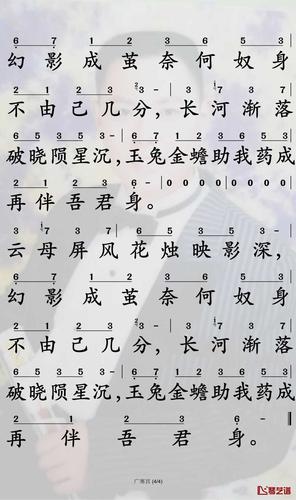 6 7 1 2 3 6 5 3
幻影成茧奈何奴身
2 1 2 3 2 3 - 3 7 3
不由己几分，长河渐落
6 5 3 5 3 - 6 7 1 2 1 2 3 5 3
破晓陨星沉，玉兔金蟾助我药成
2 1 2 3 6 - 0 0 0 0 0 0 0 0
再伴吾君身。
3 7 3 6 5 3 5 3 -
云母屏风花烛映影深，
6 7 1 2 3 6 5 3
幻影成茧奈何奴身
2 1 2 3 2 3 - 3 7 3
不由己几分，长河渐落
6 5 3 5 3 - 6 7 1 2 1 2 3 5 3
破晓陨星沉，玉兔金蟾助我药成
2 1 2 3 6 -
再伴吾君身。
广寒宫 (4/4)
琴艺谱